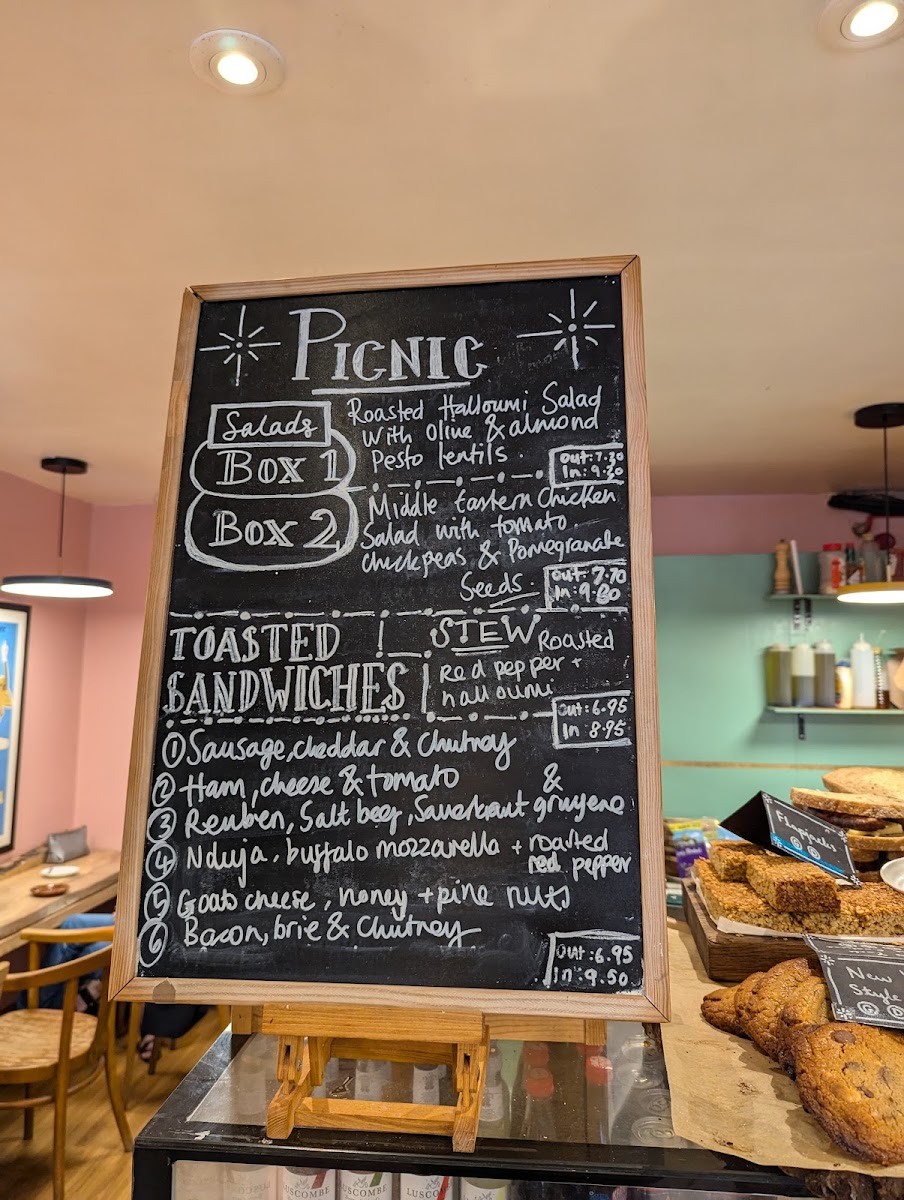 PICNIC
Salads
Box 1
Roasted Halloumi Salad
With Olive & almond
Pesto lentils.
Out: 7.30
In: 9.20
Box 2
Middle Eastern Chicken
Salad with tomato.
Chickpeas & Pomegranate
Seeds.
Out: 7.70
In: 9.60
TOASTED
SANDWICHES
STEW Roasted
Red pepper +
halloumi
Out: 6.95
In 8.95
① Sausage, cheddar & Chutney
② Ham, cheese & tomato
③ Reuben, Salt beef, Sauerkraut & gruyene
④ Nduja, buffalo mozzarella + roasted
red pepper
⑤ Goats cheese, honey + pine nuts
⑥ Bacon, brie & Chutney
Out: 6.95
In: 9.50
Flapjacks
New
Style
LUSCOMBE
LUSCOMBE
LUSCO